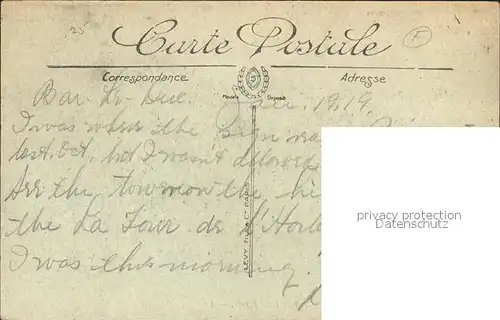 25
Carte Postale
F
Correspondance
Adresse
Modèle Déposé
Bar-le-Duc. Jan. 1919.
I was where the sign
last Oct. but I wasn't allowed
the town on the
the La Tour de l'Horl
I was this morning.
LEVY FILS & Cie PARIS
privacy protection
Datenschutz